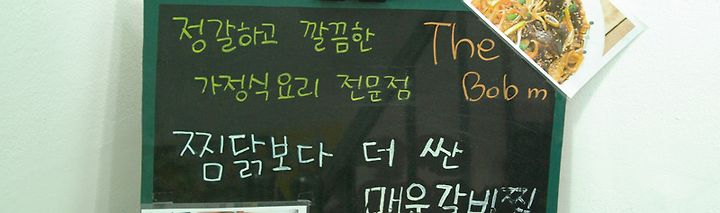 정갈하고 깔끔한
가정식요리 전문점
The
Bob m
찜닭보다 더 싼
매운갈비찜